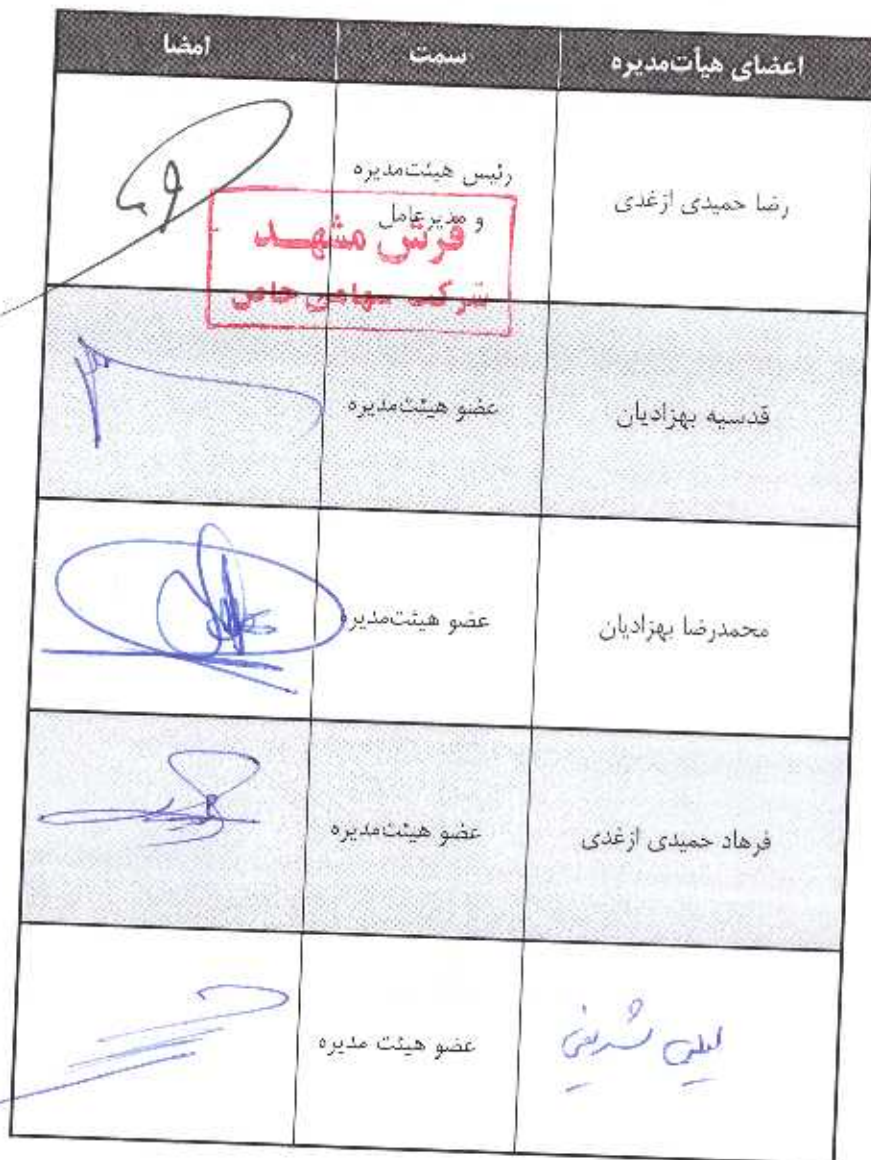 اعضای هیأت‌مدیره سمت امضا
رضا حمیدی ازغدی رئیس هیئت‌مدیره
و مدیرعامل
فرش مشهد
شرکت سهامی خاص
قدسیه بهزادیان عضو هیئت‌مدیره
محمدرضا بهزادیان عضو هیئت‌مدیره
فرهاد حمیدی ازغدی عضو هیئت‌مدیره
عضو هیئت مدیره